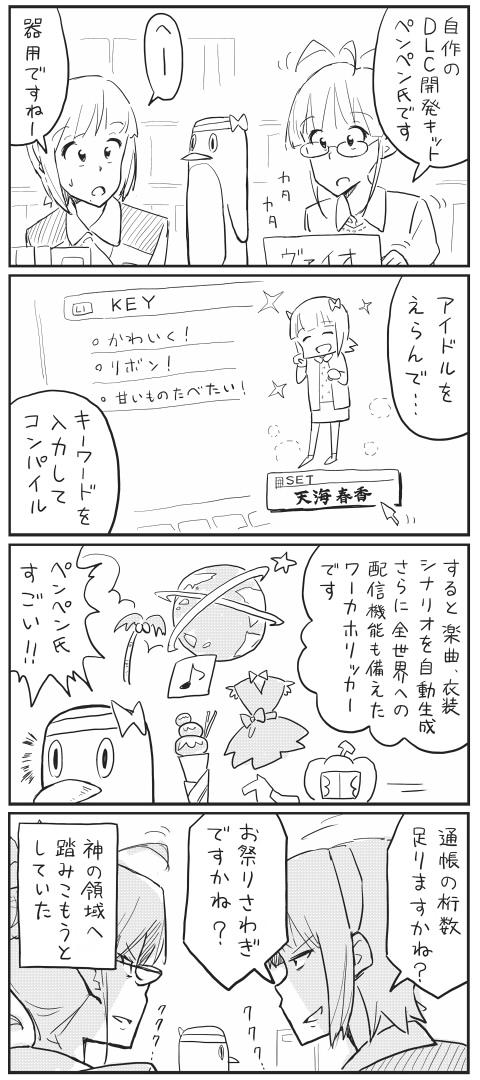 自作の
DLC開発キット
ペンペン氏です
へー
器用ですねー
カタ
カタ
ヴァイオ
アイドルを
えらんで…
LI KEY
かわいく!
リボン!
甘いものたべたい!
SET
天海春香
キーワードを
入力して
コンパイル
すると楽曲、衣装
シナリオを自動生成
さらに全世界への
配信機能も備えた
ワーカホリッカー
です
ペンペン氏
すごい!!
通帳の桁数
足りますかね?
お祭りさわぎ
ですかね?
神の領域へ
踏みこもうと
していた
ククク
ククク